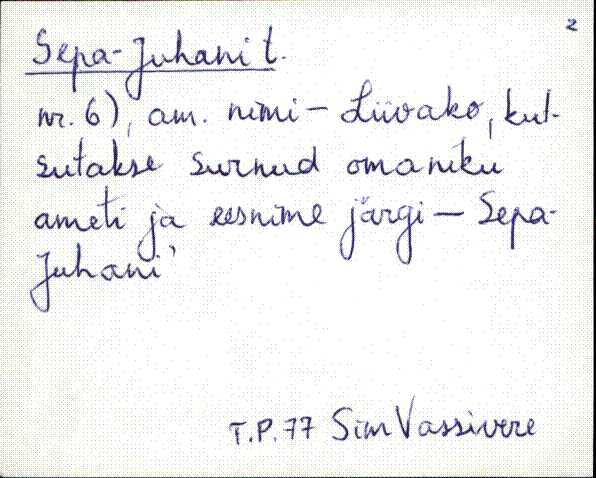 2
Sepa-Juhani t.
nr. 6), am. nimi – Liivako, kut-
sutakse surnud omaniku
ameti ja eesnime järgi – Sepa-
Juhani'
T.P. 77 Sim Vassivere